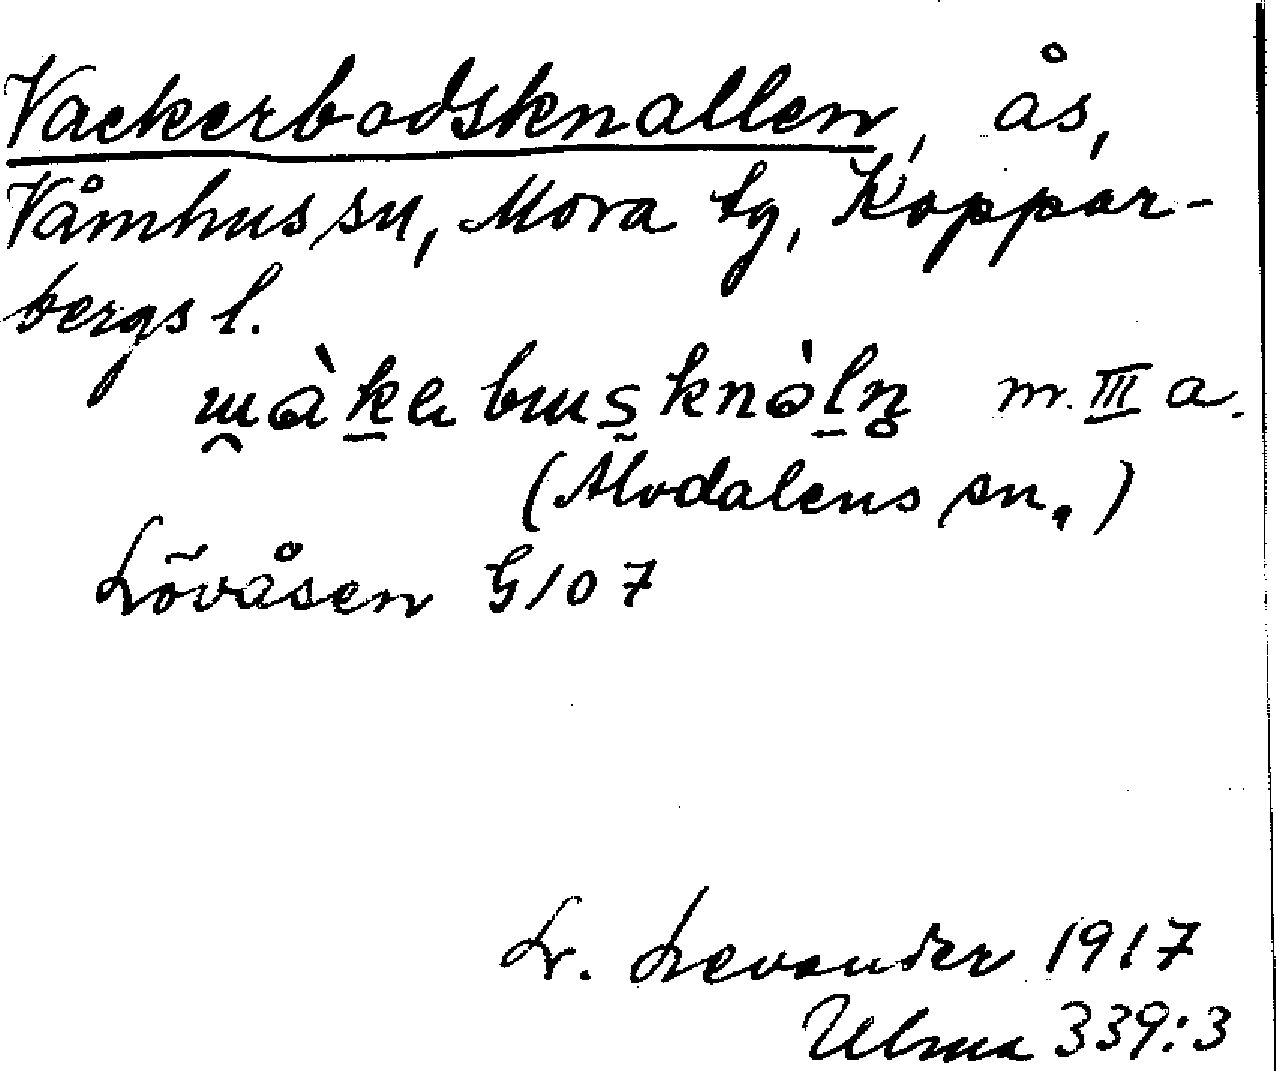 Vackerbodsknallen, ås,
Våmhus sn, Mora tg, Koppar-
bergs l.
m. III a.
(Älvdalens sn.)
Lövåsen G107
L. Levander 1917
Ulma 339:3